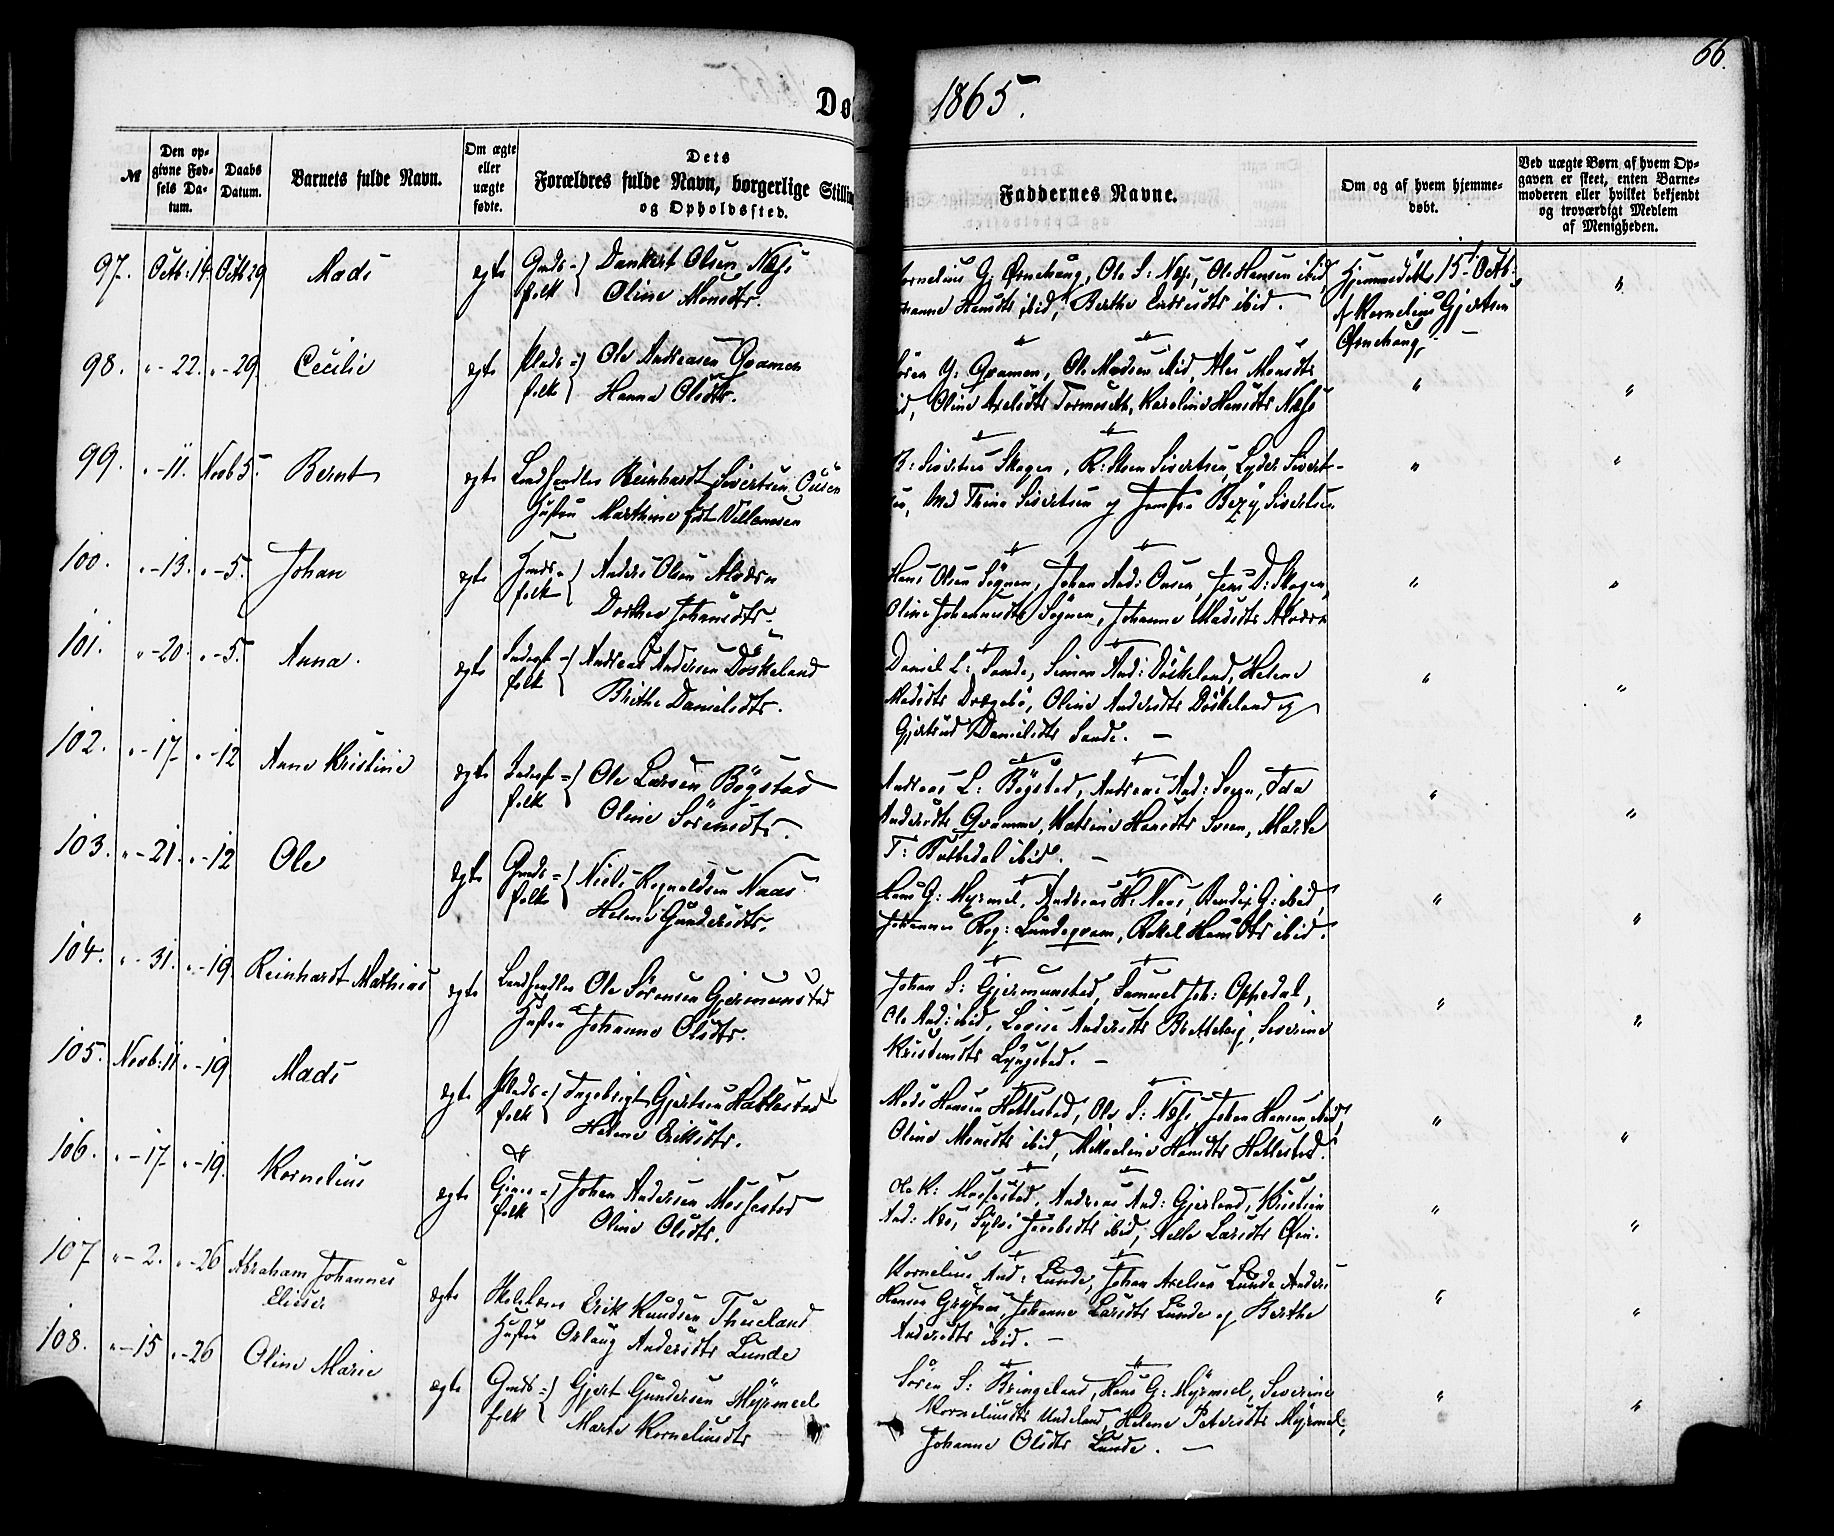 66.
Dø
1865.
№
Den op-
givne Fød-
sels Da-
tum.
Daabs
Datum.
Barnets fulde Navn.
Om ægte
eller
uægte
fødte.
Dets
Forældres fulde Navn, borgerlige Stillin
og Opholdssted.
Faddernes Navne.
Om og af hvem hjemme-
døbt.
Ved uægte Børn af hvem Op-
gaven er skeet, enten Barne-
moderen eller hvilket bekjendt
og troværdigt Medlem
af Menigheden.
97. Octb: 14. Octb 29 Mads ægte Gmds- folk { Dankert Olsen Næss
Oline Monsdtr.
ornelius G. Ørnehaug, Ole S: Næss, Ole Hansen ibid,
hanne Hansdtr ibid, Berthe Endresdtr ibid.
Hjemmedøbt 15. Octb.
af Kornelius Gjertsen
Ørnehaug. "
98. " - 22. " - 29 Cecilie ægte Plads- folk { Ole Andreasen Qvamen
Hanna Olsdtr.
ören G: Qvamen, Ole Madsen ibid, Monsdtr
id, Oline Axelsdtr, Karoline Hansdtr Næss
" "
99. " - 11. Novb 5. Bernt ægte Landhandler Reinhardt Sivertsen Ousen
Hustru Marthine født Villumsen
Sivertsen Skogen, Sivertsen, Lyder Sivert-
Md Trine Sivertsen og Jomfru Sivertsen
" "
100. " - 13. " - 5. Johan ægte Gmds- folk { Anders Olsen
Dorthea Johansdtr.
Hans Olsen Sögnen, Johan And: Ousen, Jens D: Skogen,
Oline Johannesdtr Sögnen, Johanne Madsdtr
" "
101. " - 20. " - 5. Anna. ægte Inderst- folk { Andreas Andersen Döskeland
Brithe Danielsdtr.
Daniel L: Sande, Simon And: Döskeland, Helene
Madsdtr, Oline Andersdtr Döskeland og
Gjertrud Danielsdtr Sande. —
" "
102. " - 17. " - 12 Anne Kristine ægte Inderst- folk { Ole Larsen Bögstad
Oline Sörensdtr.
Andreas L: Bögstad, Andreas And: Sveen, Ida
Andersdtr Qvamme, Katrine Hansdtr Sveen, Marte
T: ibid. —
" "
103. " - 21. " - 12 Ole ægte Gmds- folk { Niels Reynoldsen Naas
Helene Gundersdtr.
Hans G: Myrmel, Andreas H: Naas, Bendix G: ibid,
Johannes Reg: Lundeqvam, Rakel Hansdtr ibid.
" "
104. " - 31. " - 19. Reinhardt Mathias ægte Landhandler Ole Sörensen Gjermunstad
Hustru Johanne Olsdtr.
Johan S: Gjermunstad, Samuel Joh: Oppedal,
Ole And: ibid, Lovise Andersdtr, Severine
Kristensdtr Lyngstad. —
" "
105. Novb: 11 " - 19. Mads ægte Plads- folk { Ingebrigt Gjertsen Hatlestad
Helene Eriksdtr.
Mads Hansen Hatlestad, Ole S: Næss, Johan Hansen ibid,
Oline Monsdtr ibid, Hansdtr Hatlestad.
" "
106. " - 17. " - 19. Kornelius ægte Gmds- folk { Johan Andersen Mosfestad
Oline Olsdtr.
Ole K: Mosfestad, Andreas And: Gjerland, Kristian
And: Næs, Jacobsdtr ibid, Larsdtr Öen.
" "
107 " - 2. " - 26 Abraham Johannes
Elieser ægte Skolelærer Erik Knudsen Thueland
Hustru Orlaug Andersdtr Lunde
Kornelius And: Lunde, Johan Axelsen Lunde, Anders
Hansen, Johanne Larsdtr Lunde og Berthe
Andersdtr ibid. —
" "
108. " - 15 " - 26 Oline Marie ægte Gmds- folk { Gjert Gundersen Myrmel
Marte Korneliusdtr
Sören S: Bringeland, Hans G: Myrmel, Severine
Korneliusdtr Undeland, Helene Petersdtr Myrmel,
Johanne Olsdtr Lunde. —
" "